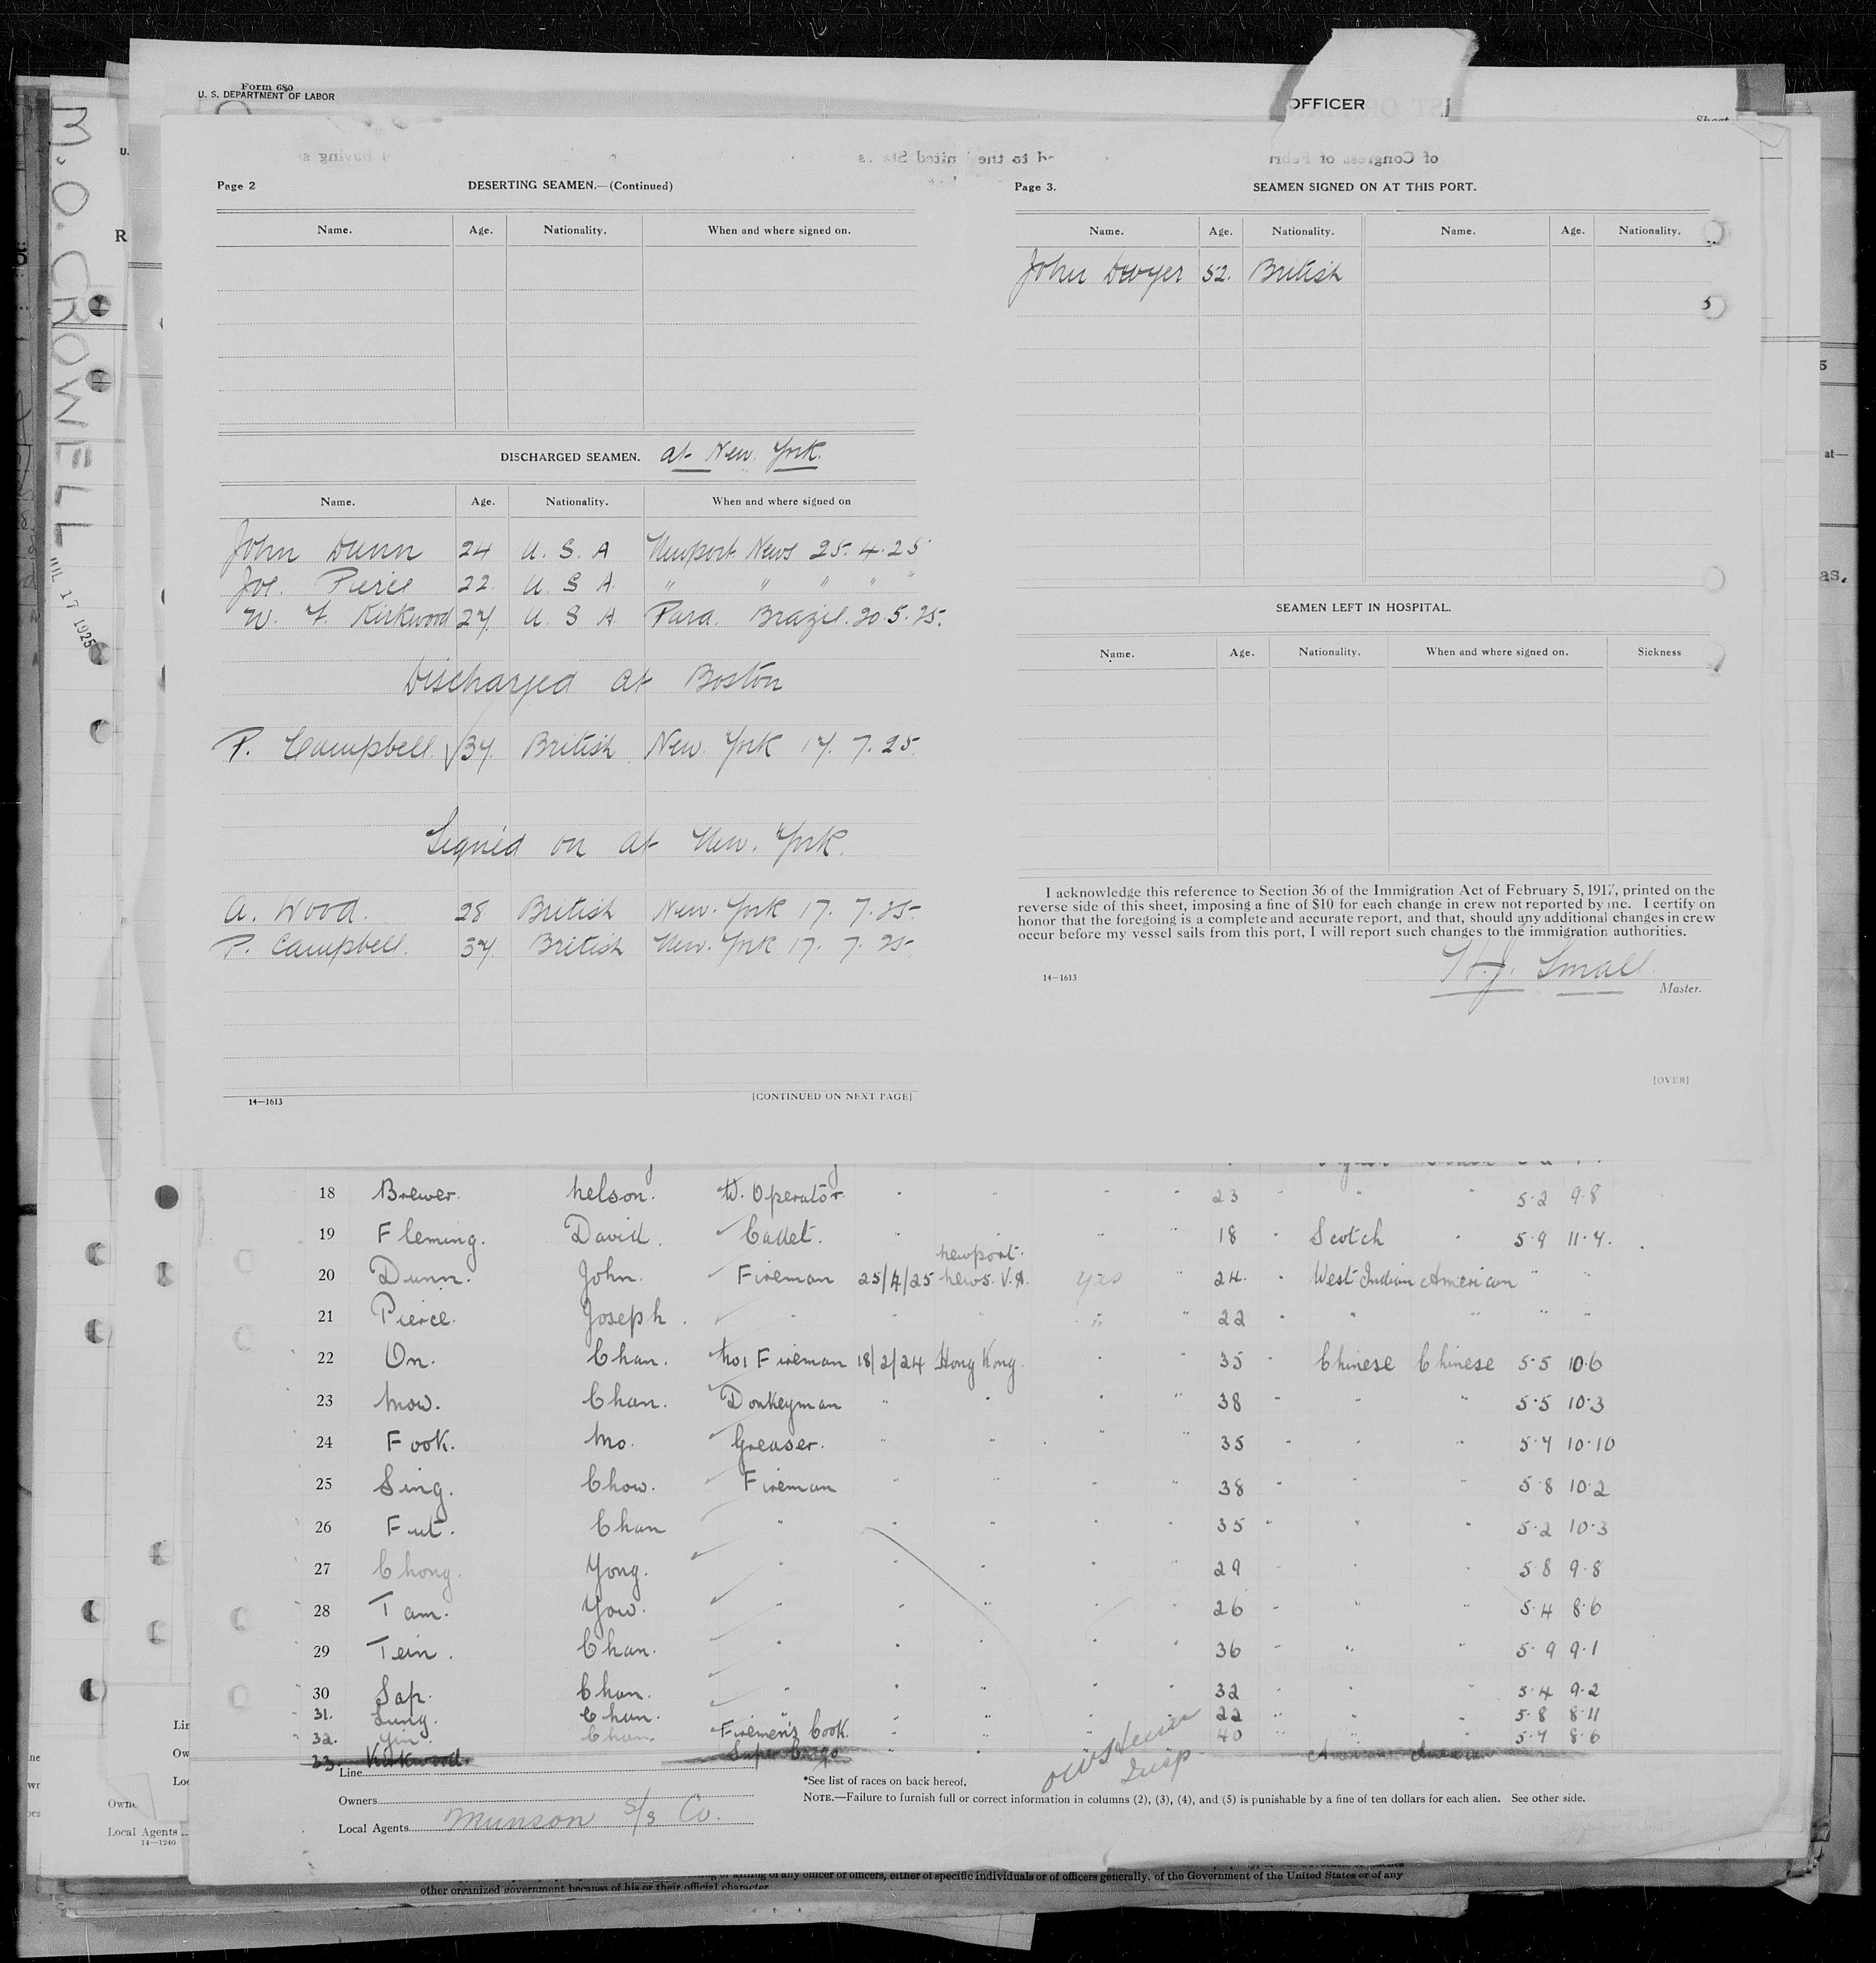 Form 680
U. S. DEPARTMENT OF LABOR
OFFICER
Sheet
M. O. CROWELL
JUL 17 1925
Page 2 DESERTING SEAMEN.—(Continued)
Name. Age. Nationality. When and where signed on.
DISCHARGED SEAMEN. at New York.
Name. Age. Nationality. When and where signed on
John Dunn 24 U. S. A Newport News 25. 4. 25
Joe. Pierce 22. U. S A. " " " " "
W. F. Kirkwood 27. U. S A Para. Brazil. 20. 5. 25.
Discharged at Boston
P. Campbell. 37. British New. York 17. 7. 25.
Signed on at New. York.
A. Wood. 28 British New. York 17. 7. 25.
P. Campbell. 37. British New. York 17. 7. 25.
14—1613 [CONTINUED ON NEXT PAGE]
Page 3. SEAMEN SIGNED ON AT THIS PORT.
Name. Age. Nationality. Name. Age. Nationality.
John Dwyer 52. British
SEAMEN LEFT IN HOSPITAL.
Name. Age. Nationality. When and where signed on. Sickness
I acknowledge this reference to Section 36 of the Immigration Act of February 5, 1917, printed on the
reverse side of this sheet, imposing a fine of $10 for each change in crew not reported by me. I certify on
honor that the foregoing is a complete and accurate report, and that, should any additional changes in crew
occur before my vessel sails from this port, I will report such changes to the immigration authorities.
H. J. Small.
14—1613 Master.
[OVER]
18 Brewer. Nelson. W. Operator. " " " " 23 " " 5·2 9·8
19 Fleming. David. Cadet. " " " " 18 " Scotch " 5·9 11·4.
20 Dunn. John. Fireman 25/4/25 Newport News. V.A. yes " 24. " West Indian American " "
21 Pierce. Joseph. " " " " " 22 " " " " "
22 On. Chan. No1 Fireman 18/2/24 Hong Kong. " " 35 " Chinese Chinese 5·5 10·6
23 Mow. Chan. Donkeyman " " " " 38 " " " 5·5 10·3
24 Fook. Mo. Greaser. " " " " 35 " " " 5·7 10·10
25 Sing. Chow. Fireman " " " " 38 " " " 5·8 10·2
26 Fut. Chan " " " " " 35 " " " 5·2 10·3
27 Chong. Yong. " " " " " 29 " " " 5·8 9·8
28 Tam. Yow. " " " " " 26 " " " 5·4 8·6
29 Tein. Chan. " " " " " 36 " " " 5·9 9·1
30 Sap. Chan. " " " " " 32 " " " 5·4 9·2
31. Lung. Chan. " " " " " 22 " " " 5·8 8·11
32. Yin. Chan. Firemen's Cook. " " " " 40 " " " 5·7 8·6
23. Kirkwood. Super Cargo " " American American
Line
*See list of races on back hereof.
Owners
NOTE.—Failure to furnish full or correct information in columns (2), (3), (4), and (5) is punishable by a fine of ten dollars for each alien. See other side.
Local Agents Munson S/S Co.
Insp
Local Agents
14—1240
other organized government because of his or their official character